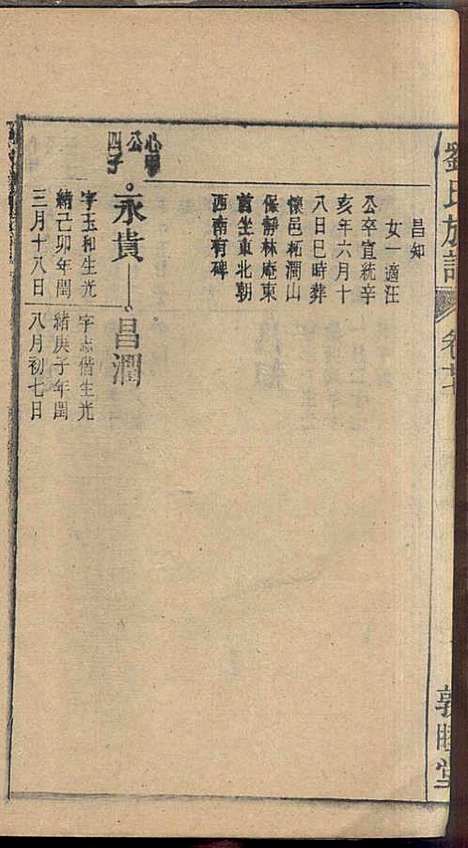 劉氏族譜
敦睦堂
昌知
女一適汪
公卒宣統辛
亥年六月十
八日巳時葬
懷邑秬澗山
保靜林庵東
首坐東北朝
西南有碑
心田公四子
永貴
昌潤
字玉和生光
緒己卯年閏
三月十八日
字志偕生光
緒庚子年閏
八月初七日